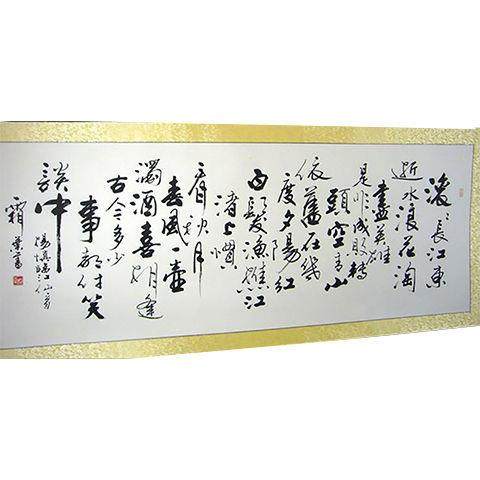 滚〻長江東
逝水浪花淘
盡英雄
是非成敗轉
頭空青山
依舊在幾
度夕陽紅
白髮漁樵江
渚上慣
看秋月
春風一壺
濁酒喜相逢
古今多少
事都付笑
談中
楊慎臨江仙
霜